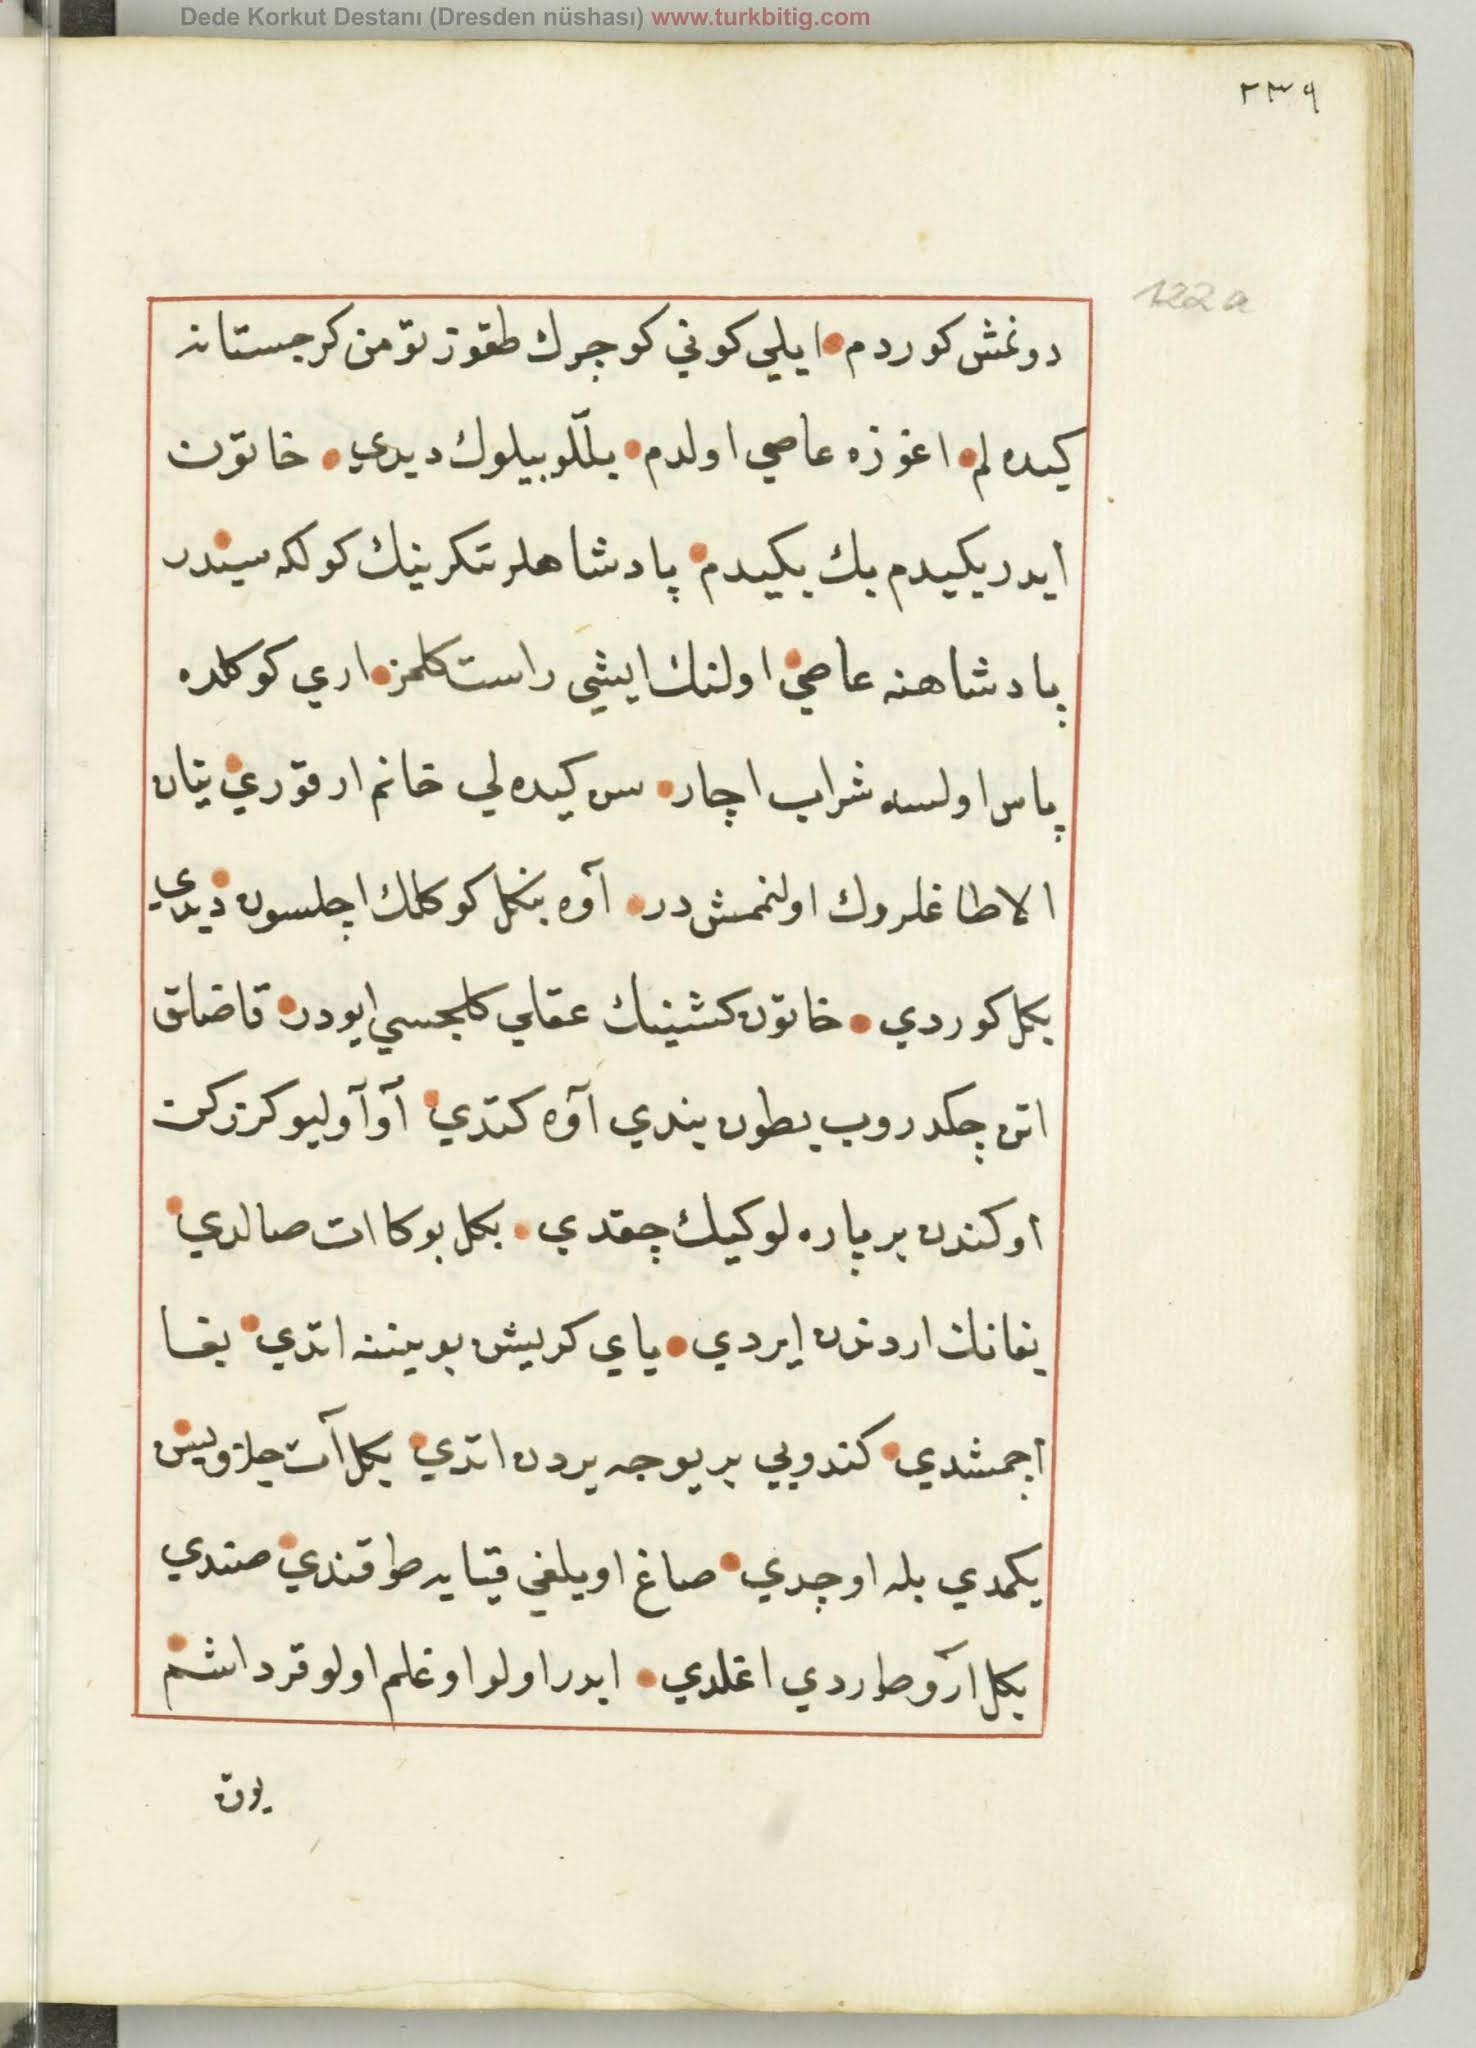 Dede Korkut Destanı (Dresden nüshası) www.turkbitig.com
٢٣٩
122a
دونمش كوردم ايلي كوني كوچرك طقوز تومن كرجستانه
كيده لم اغوزه عاصي اولدم بللو بيلوك ديدي خاتون
ايدر يكيدم بك يكيدم پادشاهلر تنكرينك كولكه سيندر
پادشاهنه عاصي اولنك ايشي راست كلمز اري كوكلده
پاس اولسه شراب اچار سن كيده لي خانم ارقوري يتان
الا طاغلروك اولنمش در آوه بنكل كوكلك اچلسون ديدي
بكل كوردي خاتون كشينك عقلي كلجسي ايودر قاضلق
اتن چكدروب بطون بندي آوه كتدي آو آوليو كرزكن
اوكندن بر پاره لو كيك چقدي بكل بوكا ات صالدي
بغانك اردندن ايردي ياي كريش بويننه اتدي بغا
اجمشدي كندويي بر يوجه يردن اتدي بكل آت جلاوين
يكمدي بله اوچدي صاغ اويلغي قيايه طوقندي صندي
بكل ارو طوردي اغلدي ايدر اولو اوغلم اولو قرداشم
يوق